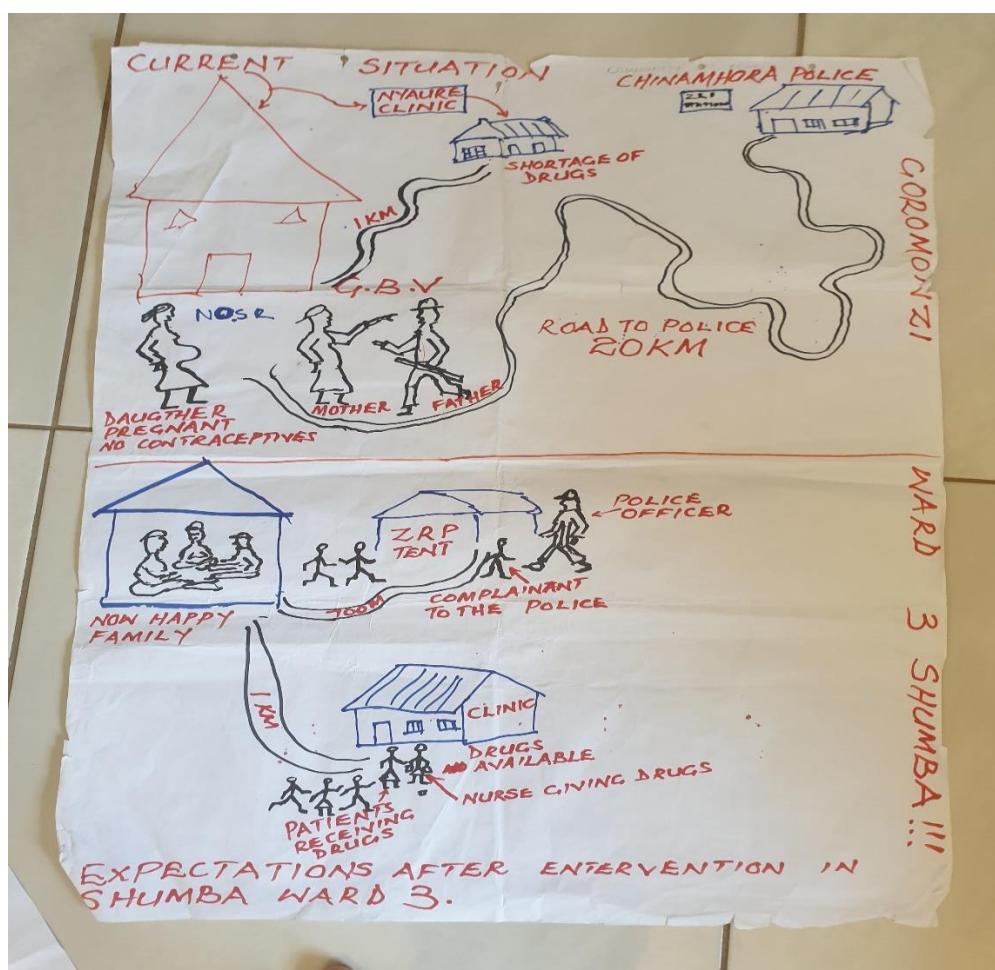 CURRENT SITUATION
NYAURE
CLINIC
CHINAMHORA POLICE
ZRP
STATION
SHORTAGE OF
DRUGS
1KM
G.B.V
NO SR
ROAD TO POLICE
20KM
MOTHER
FATHER
DAUGTHER
PREGNANT
NO CONTRACEPTIVES
GOROMONZI WARD 3 SHUMBA!!!
POLICE
OFFICER
ZRP
TENT
700M
COMPLAINANT
TO THE POLICE
NOW HAPPY
FAMILY
1KM
CLINIC
DRUGS
AVAILABLE
NURSE GIVING DRUGS
PATIENTS
RECEIVING
DRUGS
EXPECTATIONS AFTER ENTERVENTION IN
SHUMBA WARD 3.